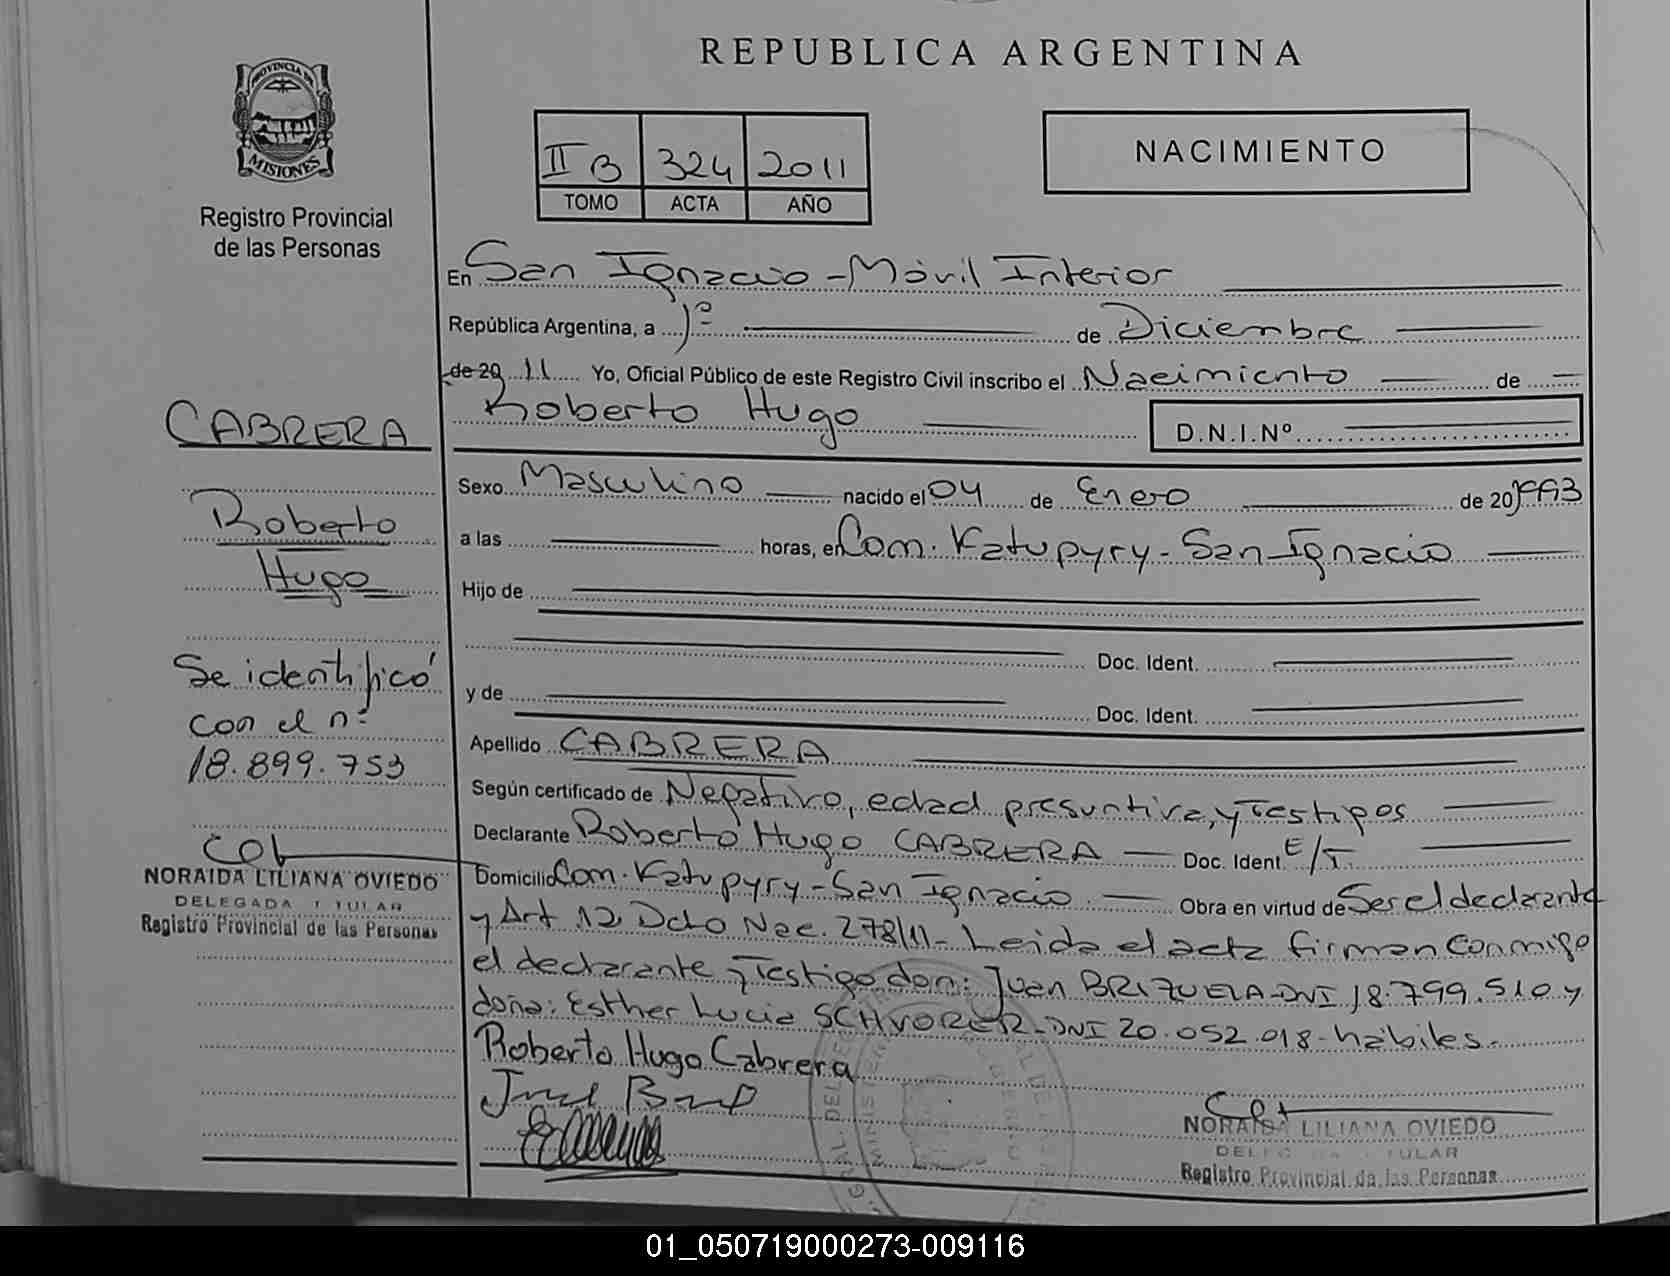 REPUBLICA ARGENTINA
PROVINCIA DE
MISIONES
Registro Provincial
de las Personas
II B 324 2011
TOMO ACTA AÑO
NACIMIENTO
En San Ignacio - Móvil Interior
República Argentina, a 1º de Diciembre
de 20 11 Yo, Oficial Público de este Registro Civil inscribo el Nacimiento de
Roberto Hugo
D.N.I.Nº
CABRERA
Roberto
Hugo
Se identificó
con el nº
18.899.753
NORAIDA LILIANA OVIEDO
DELEGADA TITULAR
Registro Provincial de las Personas
Sexo Masculino nacido el 04 de Enero de 20 1993
a las horas, en Com. Katupyry - San Ignacio
Hijo de
Doc. Ident.
y de
Doc. Ident.
Apellido CABRERA
Según certificado de Negativo, edad presuntiva, y Testigos
Declarante Roberto Hugo CABRERA Doc. Ident. E/T
Domicilio Com. Katupyry - San Ignacio Obra en virtud de Ser el declarante
y Art 12 Dcto Nac. 278/11 - Leida el acta firman conmigo
el declarante y Testigo don: Juan BRIZUELA - DNI 18.799.510 y
doña: Esther Lucia SCHVORER - DNI 20.052.018 - hábiles.
Roberto Hugo Cabrera
NORAIDA LILIANA OVIEDO
Registro Provincial de las Personas
01_050719000273-009116